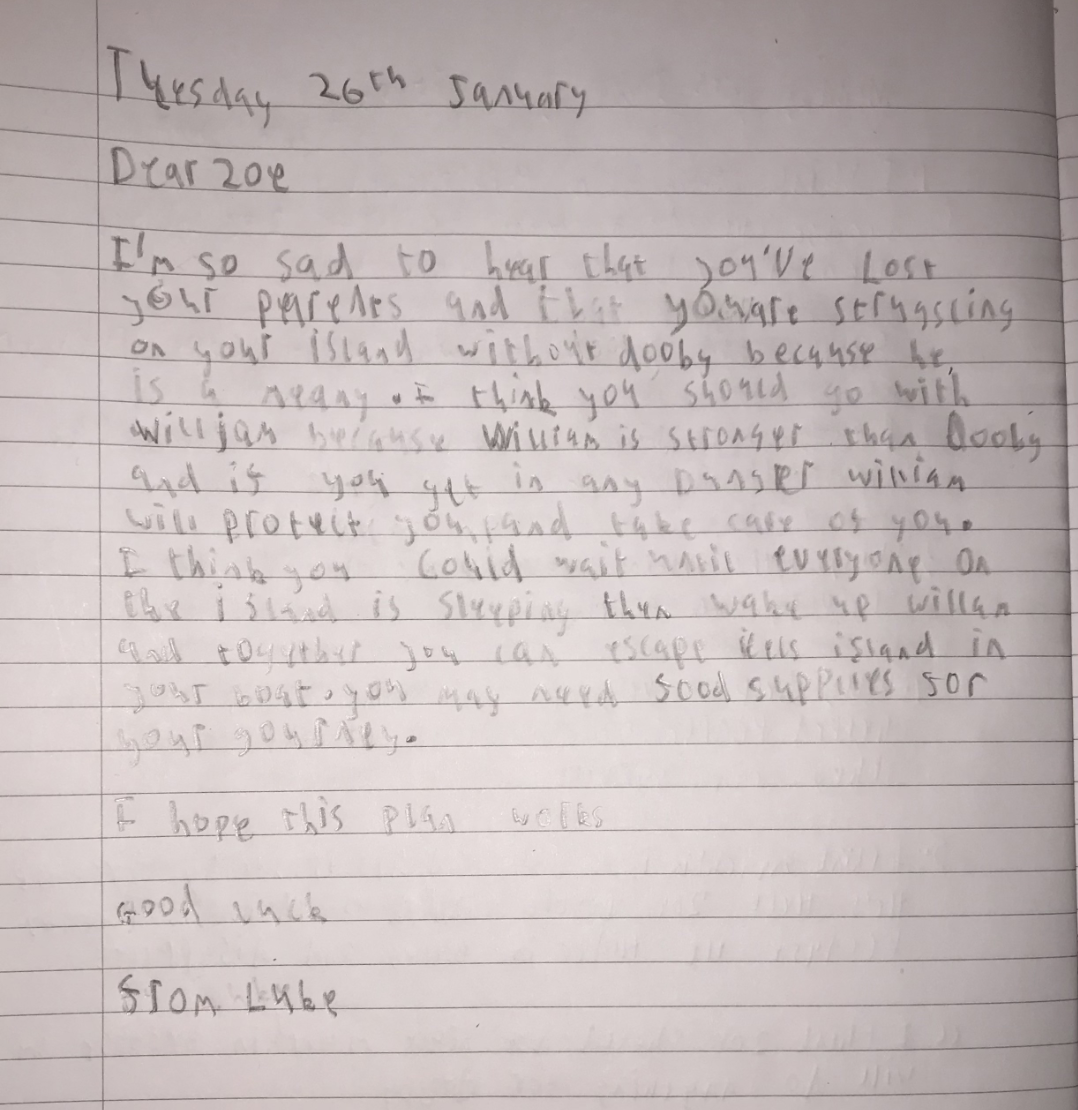 Tuesday 26th January
Dear Zoe
I'm so sad to hear that you've Lost
your parents and that you are struggling
on your island without dooby because he
is a meany. I think you should go with
william because William is stronger than Dooby
and if you get in any Danger william
will protect you and take care of you.
I think you Could wait until everyone on
the island is sleeping then wake up willam
and together you can escape island in
your boat. you may need food supplies for
your gourney.
I hope this plan works
Good luck
from Luke